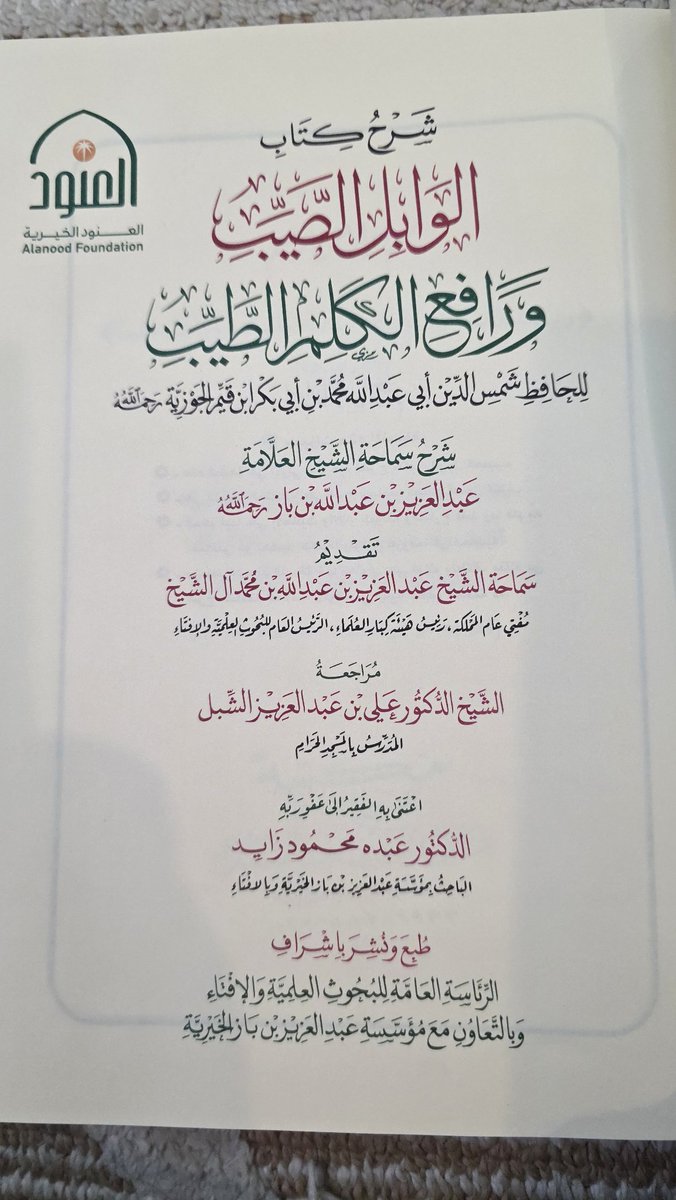 العنود
العنود الخيرية
Alanood Foundation
شَرْحُ كِتَابِ
الوَابِلِ الصَّيِّبِ
وَرَافِعِ الكَلِمِ الطَّيِّبِ
لِلحَافِظِ شَمْسِ الدِّيْنِ أبي عَبْدِ اللَّه مُحَمَّدِ بْنِ أَبي بَكْرٍ ابْنِ قَيِّمِ الجَوْزِيَّةِ رَحِمَهُ اللَّهُ
شَرْحُ سَمَاحَةِ الشَّيْخِ العَلَّامَةِ
عَبْدِ العَزِيْزِ بْنِ عَبْدِ اللَّه بْنِ بَاز رَحِمَهُ اللَّهُ
تَقْدِيْمُ
سَمَاحَةِ الشَّيْخِ عَبْدِ العَزِيْزِ بْنِ عَبْدِ اللَّه بْنِ مُحَمَّد آل الشَّيْخِ
مُفْتِي عَام المَمْلَكَة، رَئِيسُ هَيْئَة كِبَارِ العُلَمَاءِ، الرَّئِيْسُ العَام لِلبُحُوثِ العِلْمِيَّةِ وَالإِفْتَاءِ
مُرَاجَعَةُ
الشَّيْخ الدُّكتُور عَلِي بْن عَبْدِ العَزِيْز الشِّبل
المُدَرِّسُ بِالمَسْجِدِ الحَرَامِ
اعْتَنَى بِهِ الفَقِيْرُ إِلَى عَفْوِ رَبِّهِ
الدُّكتُور عَبْدُه مَحْمُود زَايِد
البَاحِثُ بِمُؤَسَّسَةِ عَبْدِ العَزِيزِ بْنِ بَاز الخَيْرِيَّةِ وَبِالإِفْتَاءِ
طُبِعَ وَنُشِرَ بِإِشْرَافِ
الرِّئَاسَةِ العَامَّةِ لِلبُحُوثِ العِلمِيَّةِ وَالإِفْتَاءِ
وَبِالتَّعَاوُنِ مَعَ مُؤَسَّسَةِ عَبْدِ العَزِيْزِ بْنِ بَاز الخَيْرِيَّةِ